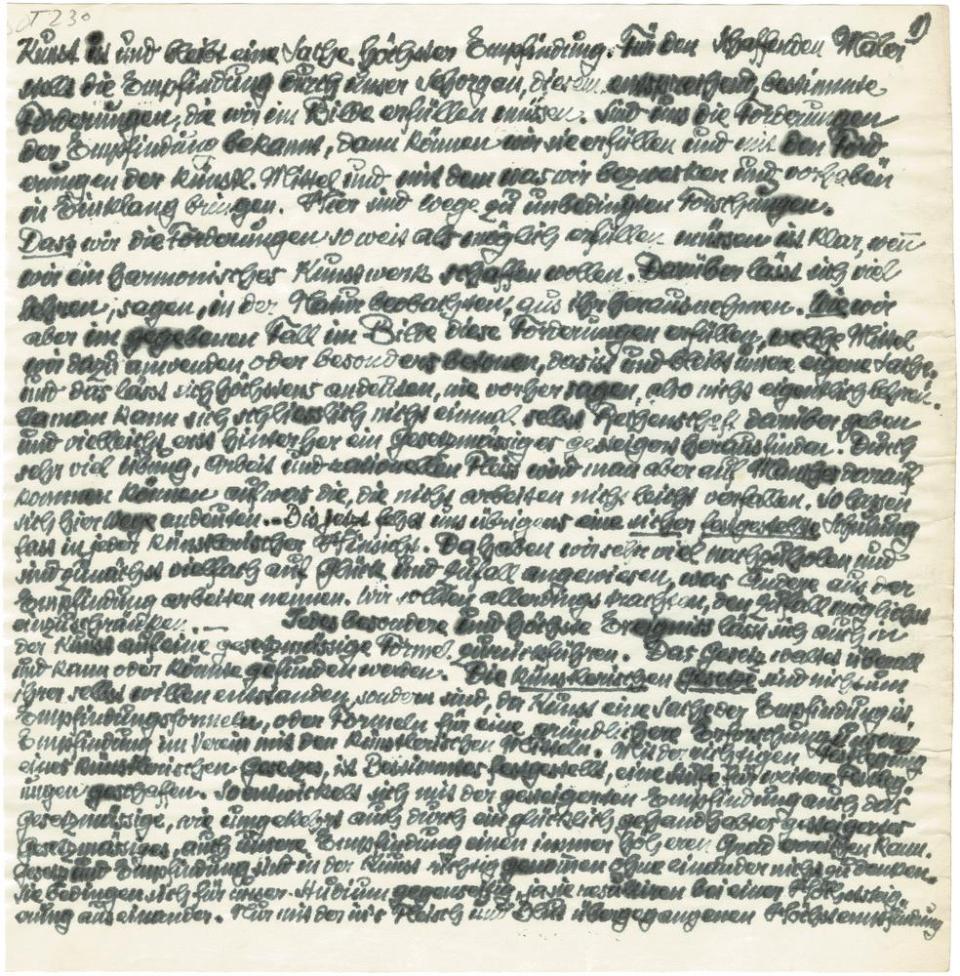 T 230
1)
Kunst ist und bleibt eine Sache höchster Empfindung. Für den schaffenden Maler
stellt die Empfindung durch unser Sehorgan, diesem entsprechend, bestimmte
Forderungen, die wir im Bilde erfüllen müssen. Sind uns die Forderungen
der Empfindung bekannt, dann können wir sie erfüllen und mit den Ford-
erungen der künstl. Mittel und mit dem was wir bezwecken und vorhaben
in Einklang bringen. Hier sind Wege zu unbedingten Forschungen.
Dass wir die Forderungen so weit als möglich erfüllen müssen ist klar, wenn
wir ein harmonisches Kunstwerk schaffen wollen. Darüber lässt sich viel
lehren, sagen, in der Natur beobachten, aus ihr herausnehmen. Wie wir
aber im gegebenen Fall im Bilde diese Forderungen erfüllen, welche Mittel
wir dazu anwenden oder besonders betonen, das ist und bleibt unsere eigene Sache,
und das lässt sich höchstens andeuten, nie vorher sagen, also nicht eigentlich lehren.
Ja man kann sich schliesslich nicht einmal selbst Rechenschaft darüber geben
und vielleicht erst hinterher ein gesetzmässiges gesteigert herausfinden. Durch
sehr viel Übung, Arbeit und rationellen Fleiss wird man aber auf Manches darauf
kommen können auf was die, die nicht arbeiten nicht leicht verfallen. So lassen
sich hier Wege andeuten. – Bis jetzt fehlt uns übrigens eine sicher festgestellte Schulung
fast in jeder künstlerischer Hinsicht. Da haben wir sehr viel nachzuholen und
sind zunächst vielfach auf Glück und Zufall angewiesen, was Andere aus der
Empfindung arbeiten nennen. Wir sollten allerdings trachten, den Zufall möglichst
einzuschränken. — Jedes besondere und höchste Ereigniss lässt sich auch in
der Kunst auf eine gesetzmässige Formel zurückführen. Das Gesetz waltet überall
und kann oder könnte gefunden werden. Die künstlerischen Gesetze sind nicht um
ihrer selbst willen entstanden, sondern sind, da Kunst eine Sache der Empfindung ist,
Empfindungsformeln, oder Formeln für eine gründlichere Erforschung unserer
Empfindung im Verein mit den künstlerischen Mitteln. Mit der richtigen Festlegung
eines künstlerischen Gesetzes, ist Bestimmtes festgestellt, eine Stufe für weitere
ungen geschaffen. So entwickelt sich mit der gesteigerten Empfindung auch das
gesetzmässige, wie umgekehrt auch durch ein glücklich gehandhabtes gesteigertes
Gesetzmässiges, auch unsere Empfindung einen immer höheren Grad erreichen kann.
Gesetz und Empfindung sind in der Kunst richtig genommen ohne einander nicht zu denken.
Sie bedingen sich für unser Studium gegenseitig, ja sie resultieren bei einer Höchststeig-
erung aus einander. Nur mit der in's Fleisch und Blut übergegangenen Höchstempfindung